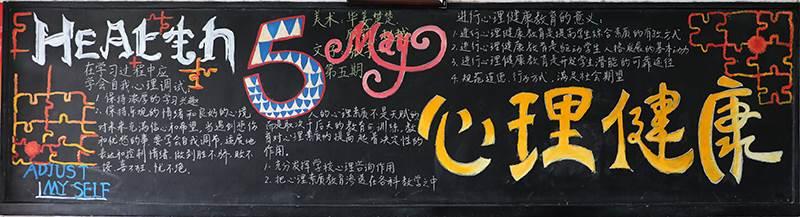 HeALth
在学习过程中应
学会自我心理调试:
1.保持浓厚的学习兴趣
2.保持乐观的情绪和良好的心境
对未来充满信心和希望,当遇到悲伤
和忧愁的事要学会自我调节,适度地
表达和控制情绪,做到胜不骄、败不
馁、喜不狂、忧不绝。
ADJUST
MY SELF
5
May
美术:
文字
第五期
人的心理素质不是天赋的
而是取决于后天的教育与训练,教
育对心理素质的提高起着决定性的
作用。
1.充分发挥学校心理咨询作用
2.把心理素质教育渗透在各科教学之中
进行心理健康教育的意义:
1.进行心理健康教育是提高学生综合素质的有效方式
2.进行心理健康教育是驱动学生人格发展的基本动力
3.进行心理健康教育是开发学生潜能的可靠途径
4.规范道德、行为方式,满足社会期望
心理健康